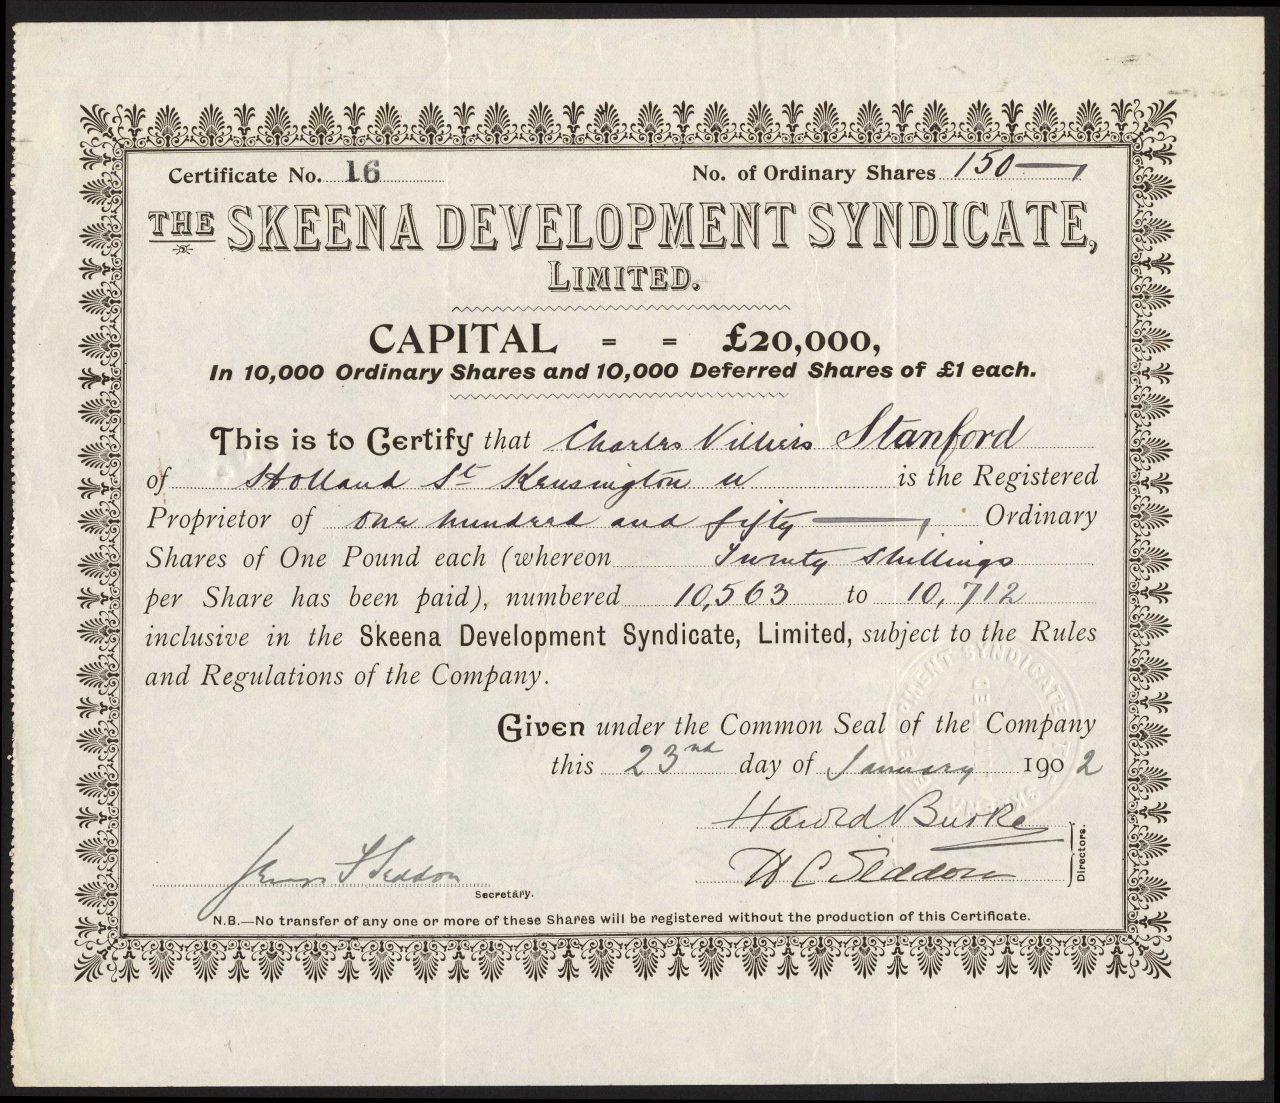 Certificate No. 16 No. of Ordinary Shares 150
THE SKEENA DEVELOPMENT SYNDICATE,
LIMITED.
CAPITAL = = £20,000,
In 10,000 Ordinary Shares and 10,000 Deferred Shares of £1 each.
This is to Certify that Charles Villiers Stanford
of Holland St Kensington W is the Registered
Proprietor of one hundred and fifty — Ordinary
Shares of One Pound each (whereon Twenty shillings
per Share has been paid), numbered 10,563 to 10,712
inclusive in the Skeena Development Syndicate, Limited, subject to the Rules
and Regulations of the Company.
Given under the Common Seal of the Company
this 23nd day of January 1902
Harold Burke
W C Seddon
Directors.
Seddon
Secretary.
N.B.—No transfer of any one or more of these Shares will be registered without the production of this Certificate.